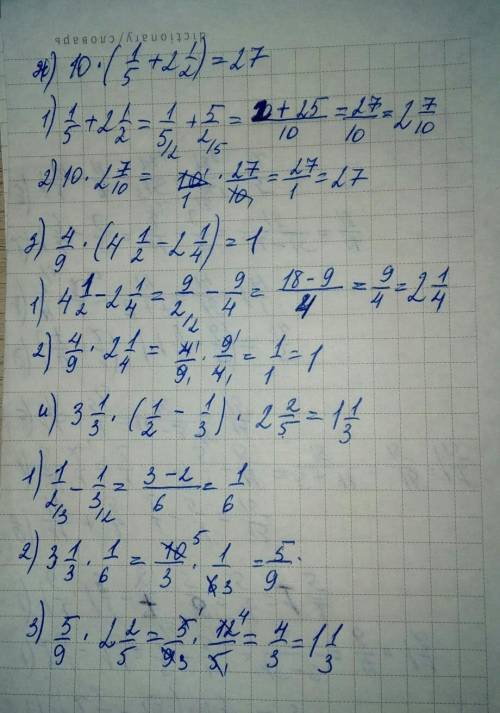 dictionary/словарь
ж) 10 · (1/5 + 2 1/2) = 27
1) 1/5 + 2 1/2 = 1/5/2 + 5/2/5 = 2+25/10 = 27/10 = 2 7/10
2) 10 · 2 7/10 = 10/1 · 27/10 = 27/1 = 27
з) 4/9 · (4 1/2 - 2 1/4) = 1
1) 4 1/2 - 2 1/4 = 9/2/2 - 9/4 = 18-9/4 = 9/4 = 2 1/4
2) 4/9 · 2 1/4 = 4 1/9 1 · 9 1/4 1 = 1/1 = 1
и) 3 1/3 · (1/2 - 1/3) · 2 2/5 = 1 1/3
1) 1/2/3 - 1/3/2 = 3-2/6 = 1/6
2) 3 1/3 · 1/6 = 10 5/3 · 1/6 3 = 5/9
3) 5/9 · 2 2/5 = 5 1/9 3 · 12 4/5 1 = 4/3 = 1 1/3